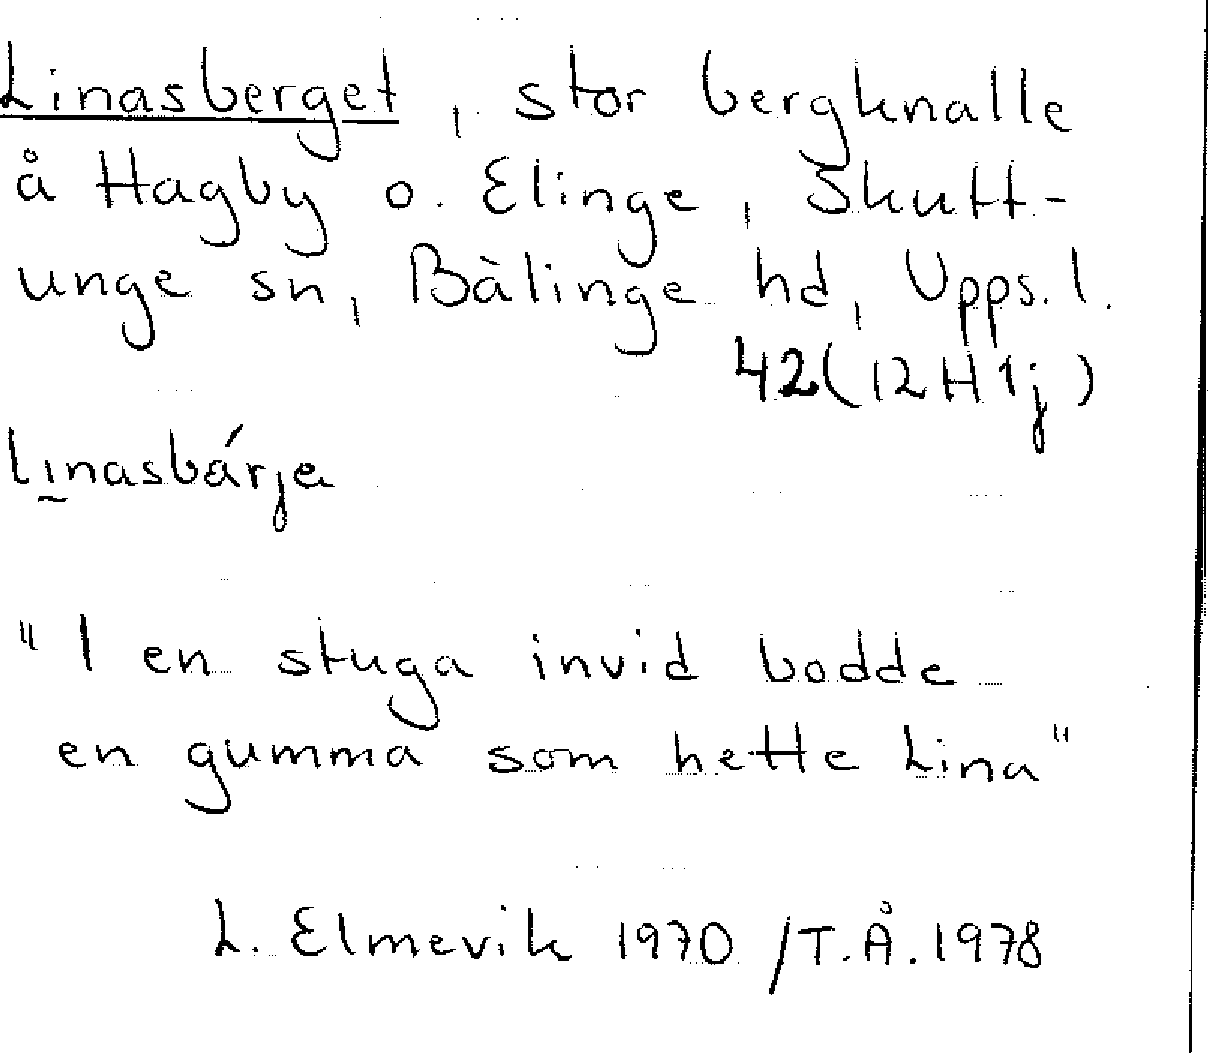 Linasberget, stor bergknalle
å Hagby o. Elinge, Skutt-
unge sn, Bälinge hd, Upps. l.
42(12H1j)
lı̰nasbárja
"I en stuga invid bodde
en gumma som hette Lina"
L. Elmevik 1970 /T.Å. 1978